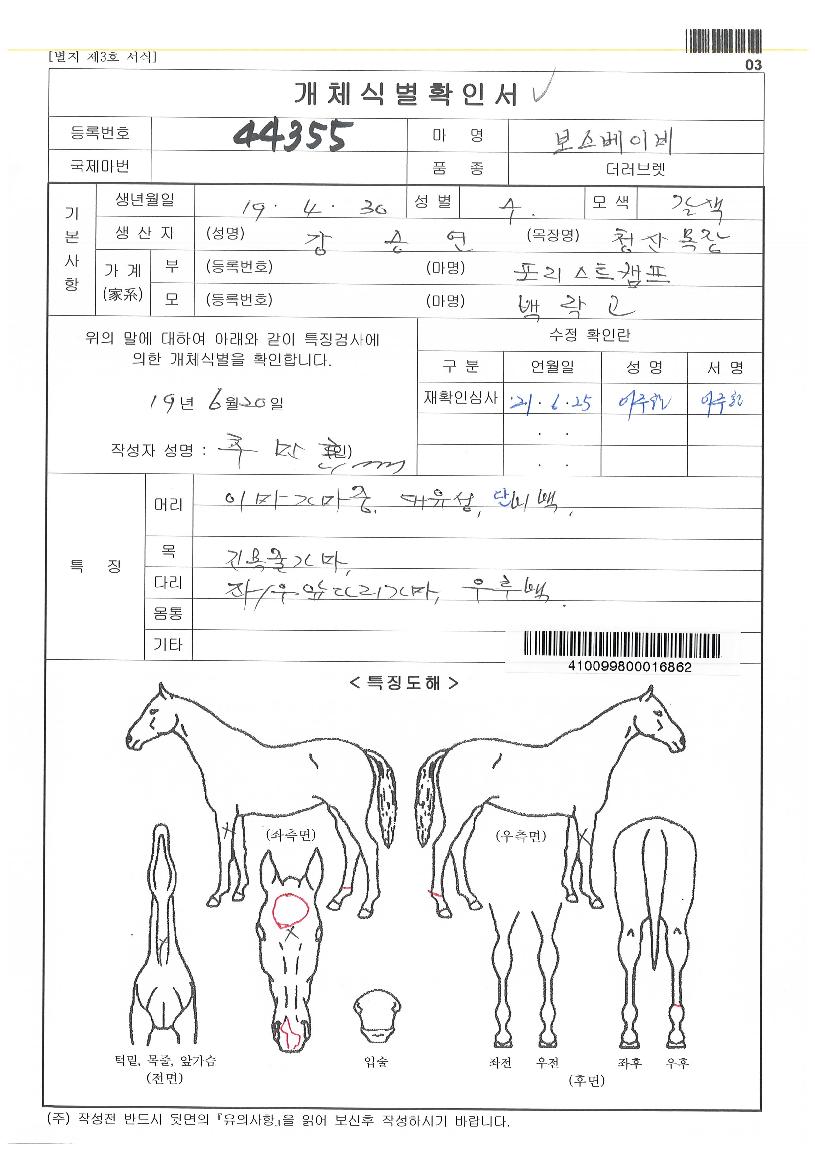 [별지 제3호 서식]
03
개체식별확인서
등록번호 44355 마 명 보스베이비
국제마번 품 종 더러브렛
기본사항
생년월일 19. 4. 30 성별 수. 모색 갈색
생산지 (성명) 강 승 연 (목장명) 청산목장
가계 (家系) 부 (등록번호) (마명) 포리스트캠프
모 (등록번호) (마명) 백락고
위의 말에 대하여 아래와 같이 특징검사에
의한 개체식별을 확인합니다.
19년 6월20일
작성자 성명 : (인)
수정 확인란
구분 언월일 성명 서명
재확인심사 '21. 6. 25
. .
. .
특 징
머리 이마가마중, 대유성, 단비백.
목 긴목줄가마,
다리 좌/우앞다리가마, 우후백.
몸통
기타
410099800016862
< 특징도해 >
(좌측면) (우측면)
턱밑, 목줄, 앞가슴
(전면)
입술
좌전 우전 좌후 우후
(후면)
(주) 작성전 반드시 뒷면의 『유의사항』을 읽어 보신후 작성하시기 바랍니다.